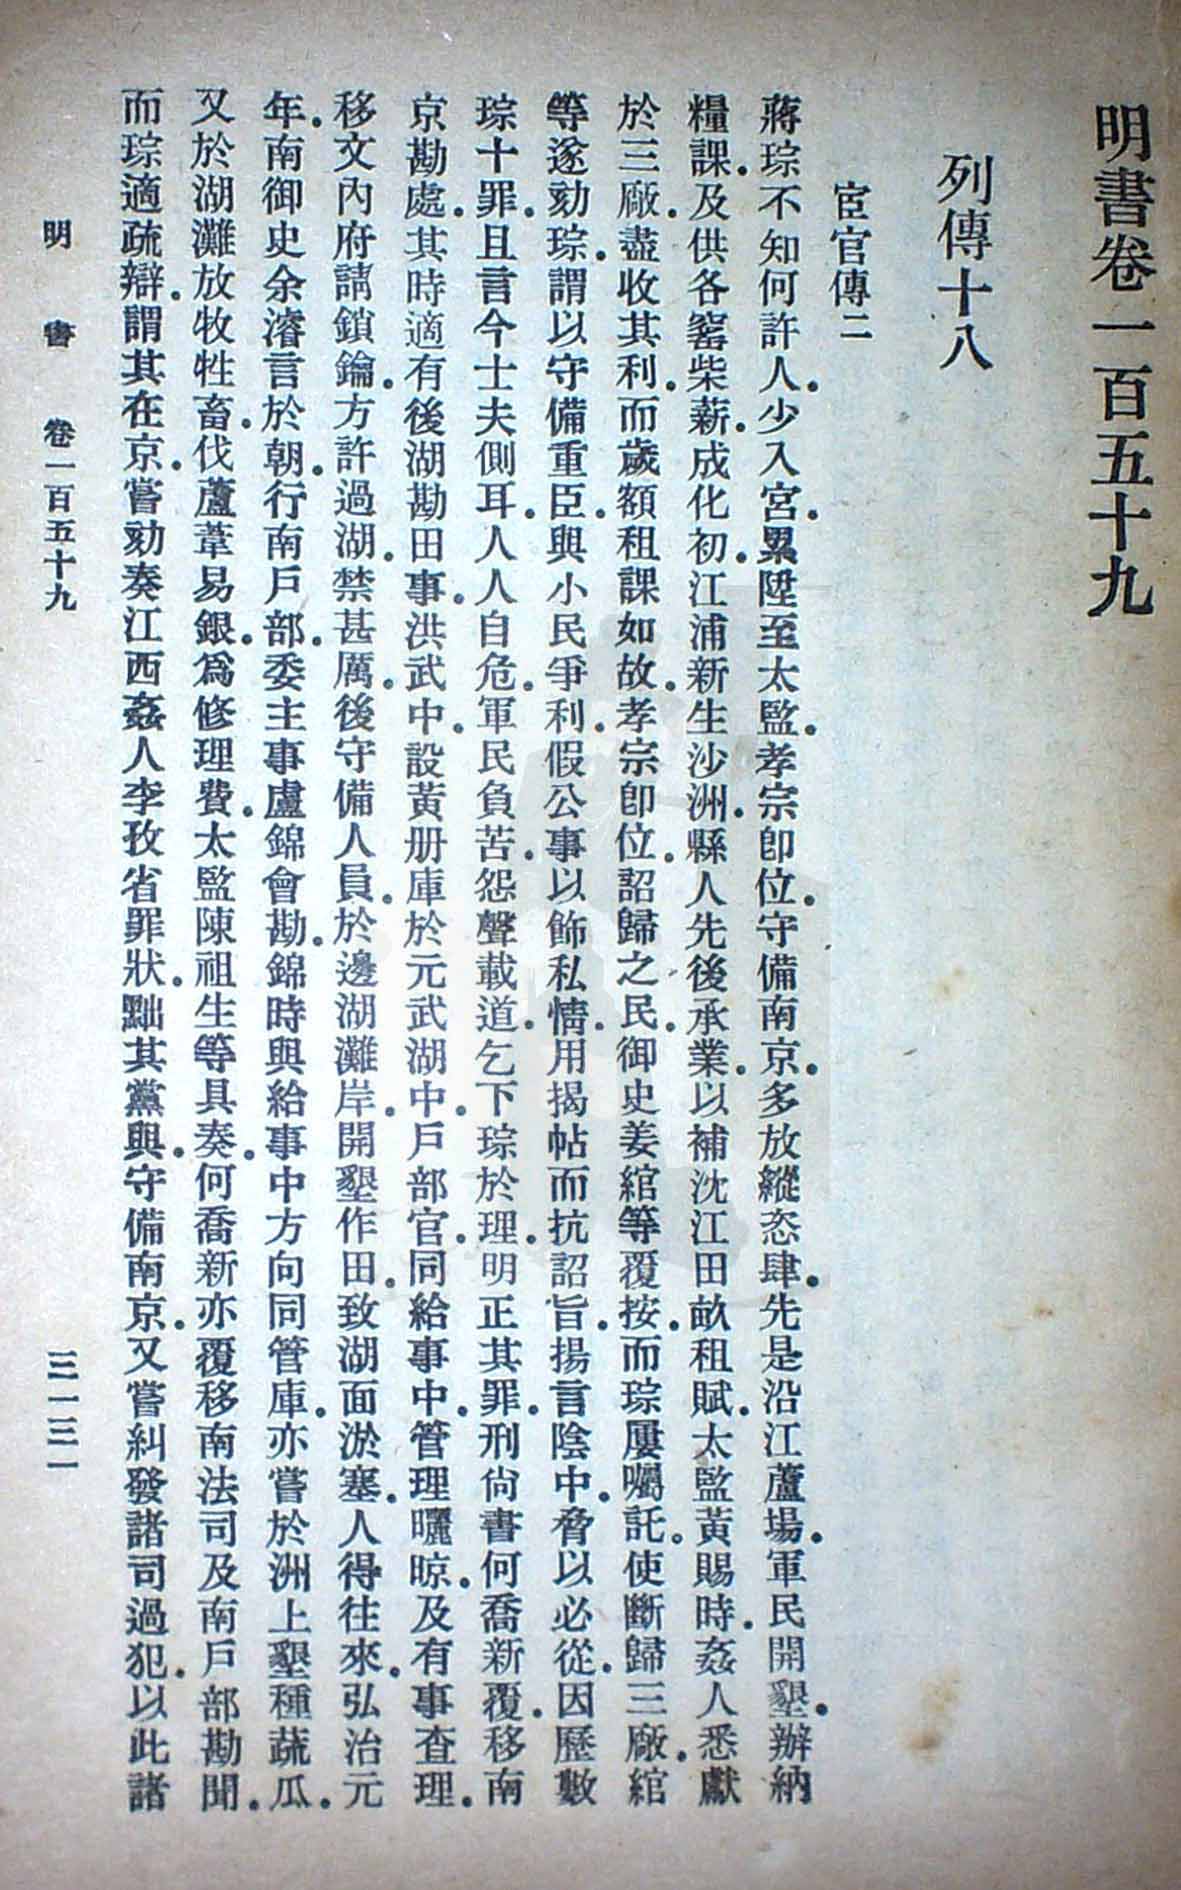 明書卷一百五十九
列傳十八
宦官傳二
蔣琮不知何許人.少入宮.累陞至太監.孝宗卽位.守備南京.多放縱恣肆.先是沿江蘆場.軍民開墾.辦納
糧課.及供各窰柴薪.成化初.江浦新生沙洲.縣人先後承業.以補沈江田畝租賦.太監黃賜時.姦人悉獻
於三廠.盡收其利.而歲額租課如故.孝宗卽位.詔歸之民.御史姜綰等覆按.而琮屢囑託.使斷歸三廠.綰
等遂劾琮.謂以守備重臣.與小民爭利.假公事以飾私情.用揭帖而抗詔旨.揚言陰中.脅以必從.因歷數
琮十罪.且言今士夫側耳.人人自危.軍民負苦.怨聲載道.乞下琮於理.明正其罪.刑尙書何喬新覆.移南
京勘處.其時適有後湖勘田事.洪武中.設黃册庫於元武湖中.戶部官.同給事中.管理曬晾.及有事查理.
移文內府請鎖鑰.方許過湖.禁甚厲.後守備人員.於邊湖灘岸.開墾作田.致湖面淤塞.人得往來.弘治元
年.南御史余濬言於朝.行南戶部.委主事盧錦會勘.錦時與給事中方向同管庫.亦嘗於洲上墾種蔬瓜.
又於湖灘放牧牲畜.伐蘆葦易銀.爲修理費.太監陳祖生等具奏.何喬新亦覆移南法司及南戶部勘聞.
而琮適疏辯.謂其在京.嘗劾奏江西姦人李孜省罪狀.黜其黨與.守備南京.又嘗糾發諸司過犯.以此諸
明書 卷一百五十九 三一三一